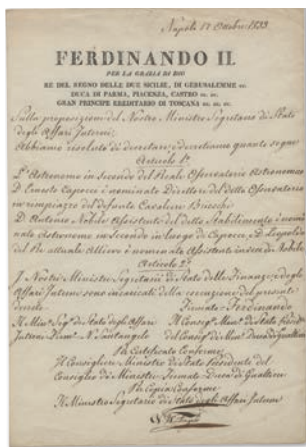 Napoli 17 Ottobre 1833
FERDINANDO II.
PER LA GRAZIA DI DIO
RE DEL REGNO DELLE DUE SICILIE, DI GERUSALEMME ec.
DUCA DI PARMA, PIACENZA, CASTRO ec. ec.
GRAN PRINCIPE EREDITARIO DI TOSCANA ec. ec. ec.
Sulla proposizione del Nostro Ministro Segretario di Stato
degli Affari Interni;
Abbiamo risoluto di decretare e decretiamo quanto segue
Articolo 1º
L'Astronomo in Secondo del Reale Osservatorio Astronomico
D. Ernesto Capocci è nominato Direttore del detto Osservatorio
in rimpiazzo del defonto Cavaliere Brioschi
D. Antonio Nobile Assistente del detto Stabilimento è nomi
nato Astronomo in Secondo in luogo di Capocci, e D. Leopoldo
del Re attuale Allievo è nominato Assistente invece di Nobile
Articolo 2º
I Nostri Ministri Segretarii di Stato delle Finanze, e degli
Affari Interni sono incaricati della esecuzione del presente
Decreto
Firmato = Ferdinando
Il Min.o Seg.o di Stato degli Affari
Interni Firm.o N. Santangelo
Il Consig. Min.o di Stato Presid.te
del Consig. de' Min.i Duca di Gualtieri
Per Certificato Conforme
Il Consigliere Ministro di Stato Presidente del
Consiglio de' Ministri Firmato Duca di Gualtieri
Per Copia Conforme
Il Ministro Segretario di Stato degli Affari Interni